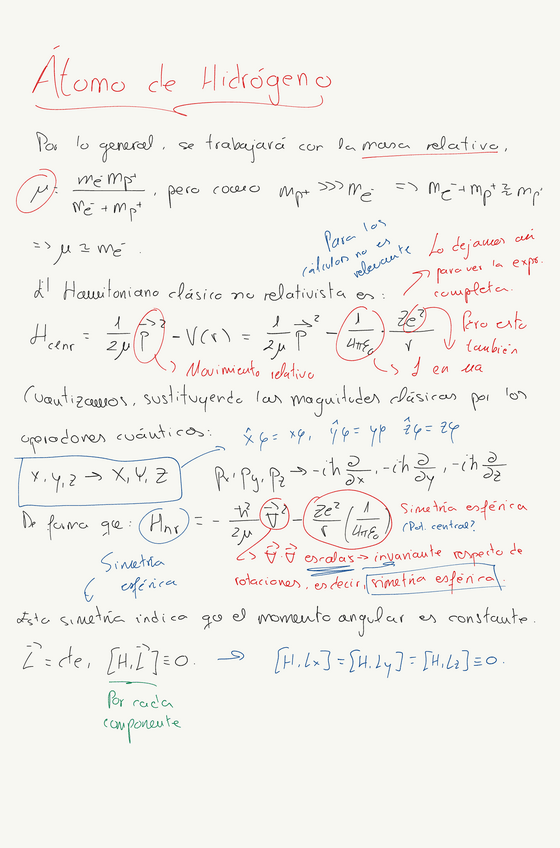 Átomo de Hidrógeno
Por lo general, se trabajará con la masa relativa,
μ: \frac{m_{e^-} m_{p^+}}{m_{e^-} + m_{p^+}}, pero como m_{p^+} >>> m_{e^-} => m_{e^-} + m_{p^+} ≅ m_{p^+}
=> μ ≅ m_{e^-}.
Para los
cálculos no es
relevante
Lo dejamos así
para ver la expr.
completa.
El Hamiltoniano clásico no relativista es:
H_{clnr} = \frac{1}{2μ} \vec{p}^2 - V(r) = \frac{1}{2μ} \vec{p}^2 - \frac{1}{4πε_0} · \frac{Ze^2}{r}
Pero esto
también
↳ Movimiento relativo
↳ 1 en ua
Cuantizamos, sustituyendo las magnitudes clásicas por los
operadores cuánticos:
\hat{x}φ = xφ, \hat{y}φ = yφ \hat{z}φ = zφ
x, y, z → X, Y, Z
p_x, p_y, p_z → -iħ \frac{∂}{∂x}, -iħ \frac{∂}{∂y}, -iħ \frac{∂}{∂z}
De forma que: H_{nr} = - \frac{ħ^2}{2μ} \vec{∇}^2 - \frac{Ze^2}{r} (\frac{1}{4πε_0})
Simetría esférica
(Pot. central?
↳ \vec{∇}·\vec{∇} escalas → invariante respecto de
rotaciones, es decir, simetría esférica.
Simetría
esférica
Esta simetría indica que el momento angular es constante.
\vec{L} = cte, [H, \vec{L}] ≡ 0. → [H, L_x] = [H, L_y] = [H, L_z] ≡ 0.
Por cada
componente